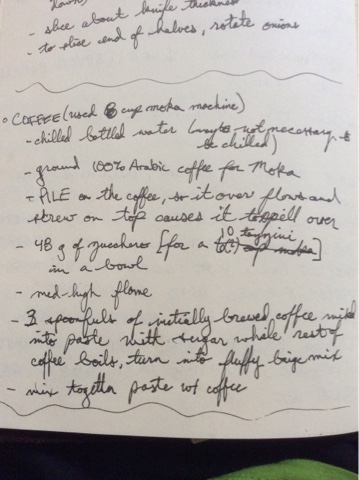 - slice about knife thickness
- to slice end of halves, rotate onions
° COFFEE (used 6 cup moka machine)
- chilled bottled water (maybe not necessary to
be chilled)
- ground 100% Arabic coffee for Moka
- PILE on the coffee, so it over flows and
screw on top causes it to spill over
- 48 g of zucchero [for a 10 tazzini]
in a bowl
- med-high flame
- 3 spoonfuls of initially brewed coffee mixed
into paste with sugar while rest of
coffee boils, turn into fluffy beige mix
- mix together paste w/ coffee